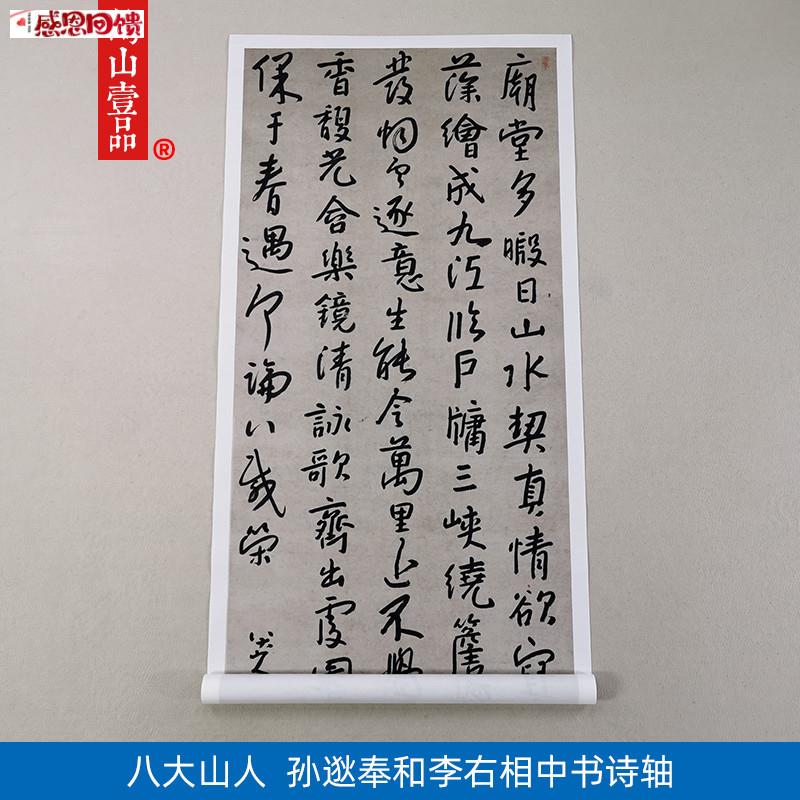 感恩回馈
山壹品
®
廟堂多暇日山水契真情欲
藻繪成九江臨戶牖三峽繞簷
發烟雲逐意生能令萬里近不
香馥光含樂鏡清詠歌齊出處
保千春遇何論八載榮
八大山人 孙逖奉和李右相中书诗轴